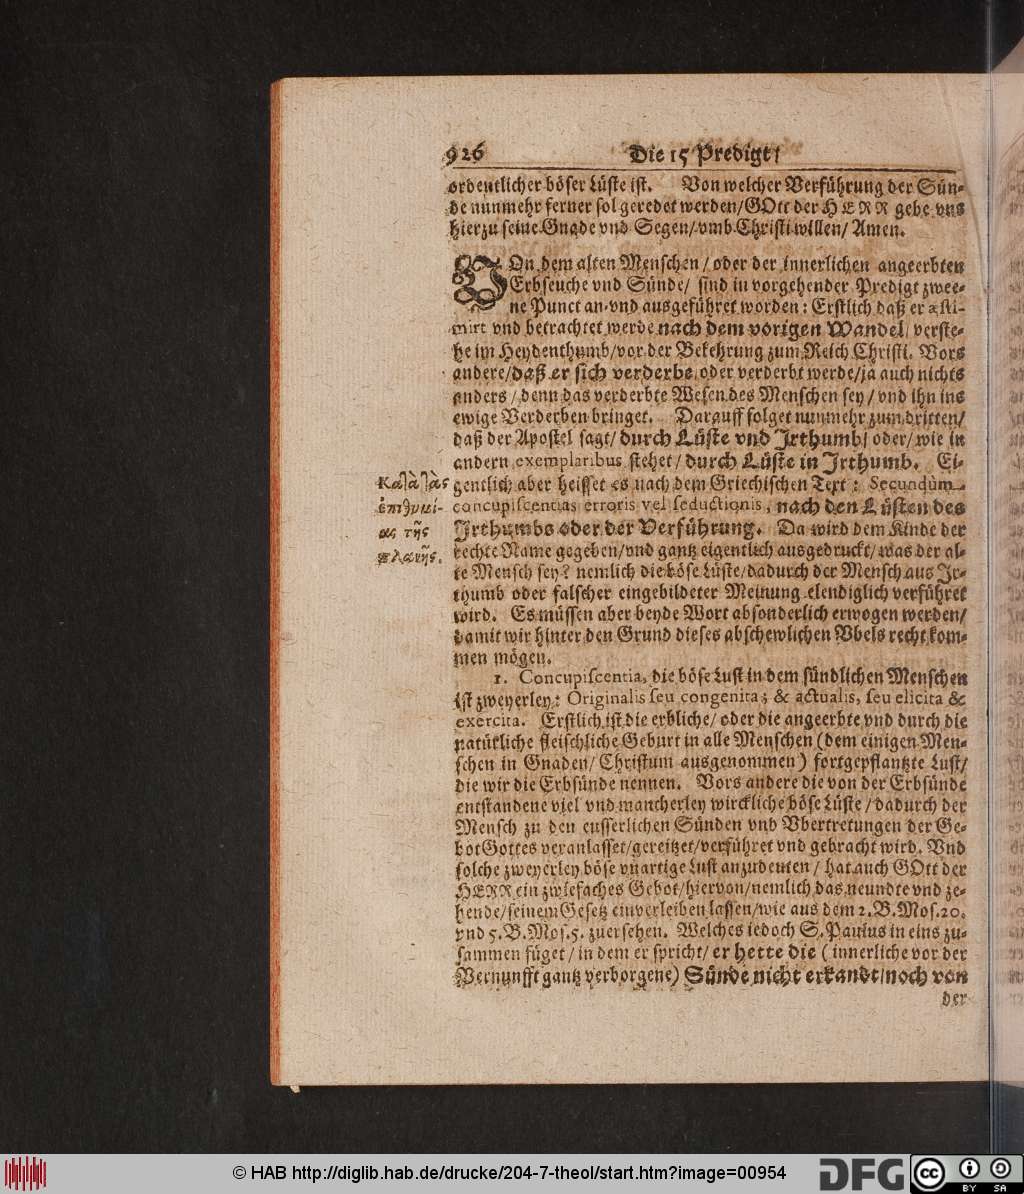 926 Die 15 Predigt/
ordentlicher böser Lüste ist. Von welcher Verführung der Sün-
de nunmehr ferner sol geredet werden/GOtt der HERR gebe vns
hierzu seine Gnade vnd Segen/vmb Christi willen/ Amen.
VOn dem alten Menschen/ oder der innerlichen angeerbten
Erbseuche vnd Sünde/ sind in vorgehender Predigt zwee-
ne Punct an vnd ausgeführet worden: Erstlich daß er æsti-
mirt vnd betrachtet werde nach dem vorigen Wandel/ verste-
he im Heydenthumb/vor der Bekehrung zum Reich Christi. Vors
andere/daß er sich verderbe/oder verderbt werde/ja auch nichts
anders/denn das verderbte Wesen des Menschen sey/vnd ihn ins
ewige Verderben bringet. Darauff folget nunmehr zum dritten/
daß der Apostel sagt/durch Lüste vnd Jrthumb/ oder/wie in
andern exemplaribus stehet/durch Lüste in Jrthumb. Ei-
gentlich aber heisset es nach dem Griechischen Text: Secundùm
concupiscentias erroris vel seductionis, nach den Lüsten des
Jrthumbs oder der Verführung. Da wird dem Kinde der
rechte Name gegeben/vnd gantz eigentlich ausgedruckt/was der al-
te Mensch sey? nemlich die böse Lüste/dadurch der Mensch aus Jr-
thumb oder falscher eingebildeter Meinung elendiglich verführet
wird. Es müssen aber beyde Wort absonderlich erwogen werden/
damit wir hinter den Grund dieses abschewlichen Vbels recht kom-
men mögen.
Καταὰς
ἐπιθυμί-
ας τῆς
πλάνης.
1. Concupiscentia, die böse Lust in dem sündlichen Menschen
ist zweyerley: Originalis seu congenita; & actualis, seu elicita &
exercita. Erstlich ist die erbliche/ oder die angeerbte vnd durch die
natürliche fleischliche Geburt in alle Menschen (dem einigen Men-
schen in Gnaden/ Christum ausgenommen) fortgepflantzte Lust/
die wir die Erbsünde nennen. Vors andere die von der Erbsünde
entstandene viel vnd mancherley wirckliche böse Lüste/dadurch der
Mensch zu den eusserlichen Sünden vnd Vbertretungen der Ge-
bot Gottes veranlasset/gereitzet/verführet vnd gebracht wird. Vnd
solche zweyerley böse vnartige Lust anzudeuten/ hat auch GOtt der
HERR ein zwiefaches Gebot/hiervon/nemlich das neundte vnd ze-
hende/seinem Gesetz einverleiben lassen/wie aus dem 2.B.Mos.20.
vnd 5.B.Mos.5. zuersehen. Welches iedoch S.Paulus in eins zu-
sammen füget/in dem er spricht/er hette die (innerliche vor der
Vernunfft gantz verborgene) Sünde nicht erkandt/noch von
der
© HAB http://diglib.hab.de/drucke/204-7-theol/start.htm?image=00954 DFG CC BY SA